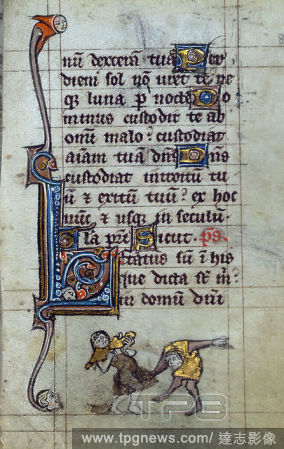 num dexteram tuā Per
diem sol nō uret te ne
q; luna p nocte Do
minus custodit te ab
omni malo: custodiat
aīam tuā dn̄s Dn̄s
custodiat introitū tu
ū & exitū tuū: ex hoc
nūc & usq; in seculū.
Gła patri Sicut. ps
Letatus sū ī his
que dicta st̄ m:
in domū dn̄i
TPG
www.tpgnews.com/ 達志影像